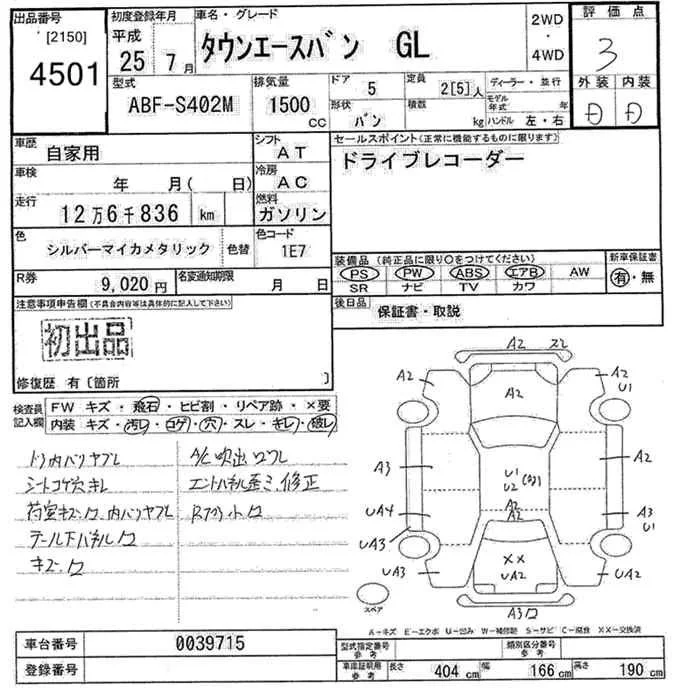 出品番号
[2150]
4501
初度登録年月
平成
25 7月
車名・グレード
タウンエースバン GL
2WD
・
4WD
評価点
3
外装 内装
D D
型式
ABF-S402M
排気量
1500
CC
ドア 5
定員 2[5]人
ディーラー・並行
形状 バン
積数 kg
モデル年式 年
ハンドル 左・右
車歴 自家用
シフト AT
車検 年 月( 日)
冷房 AC
走行 12万6千836 km
燃料 ガソリン
色 シルバーマイカメタリック 色替
色コード 1E7
R券 9,020円
名変通知期限 月 日
セールスポイント(正常に機能するものに限ります)
ドライブレコーダー
装備品 (純正品に限り〇をつけてください)
PS PW ABS エアB AW
SR ナビ TV カワ
新車保証書
有・無
後日品 保証書・取説
注意事項申告欄(不具合内容等は具体的に記入して下さい)
初出品
修復歴 有〔箇所 〕
検査員記入欄
FW キズ・飛石・ヒビ割・リペア跡・×要
内装 キズ・汚レ・コゲ・穴・スレ・キレ・破レ
ドア内バリヤブレ
シートコゲ穴キレ
テール下パネル
キズ
A/C吹出口ワレ
修正
A2
A2
A2
A2
U1
A3
A2
U1
U2
UA4
A2
A2
A3
U1
UA3
UA3
XX
UA2
UA2
スペア
A3
A-キズ E-エクボ U-凹み W-補修跡 S-サビ C-腐食 XX-交換済
車台番号 0039715
登録番号
型式指定番号 参考
類別区分番号 参考
車庫証明用 参考
長さ 404 cm 幅 166 cm 高さ 190 cm